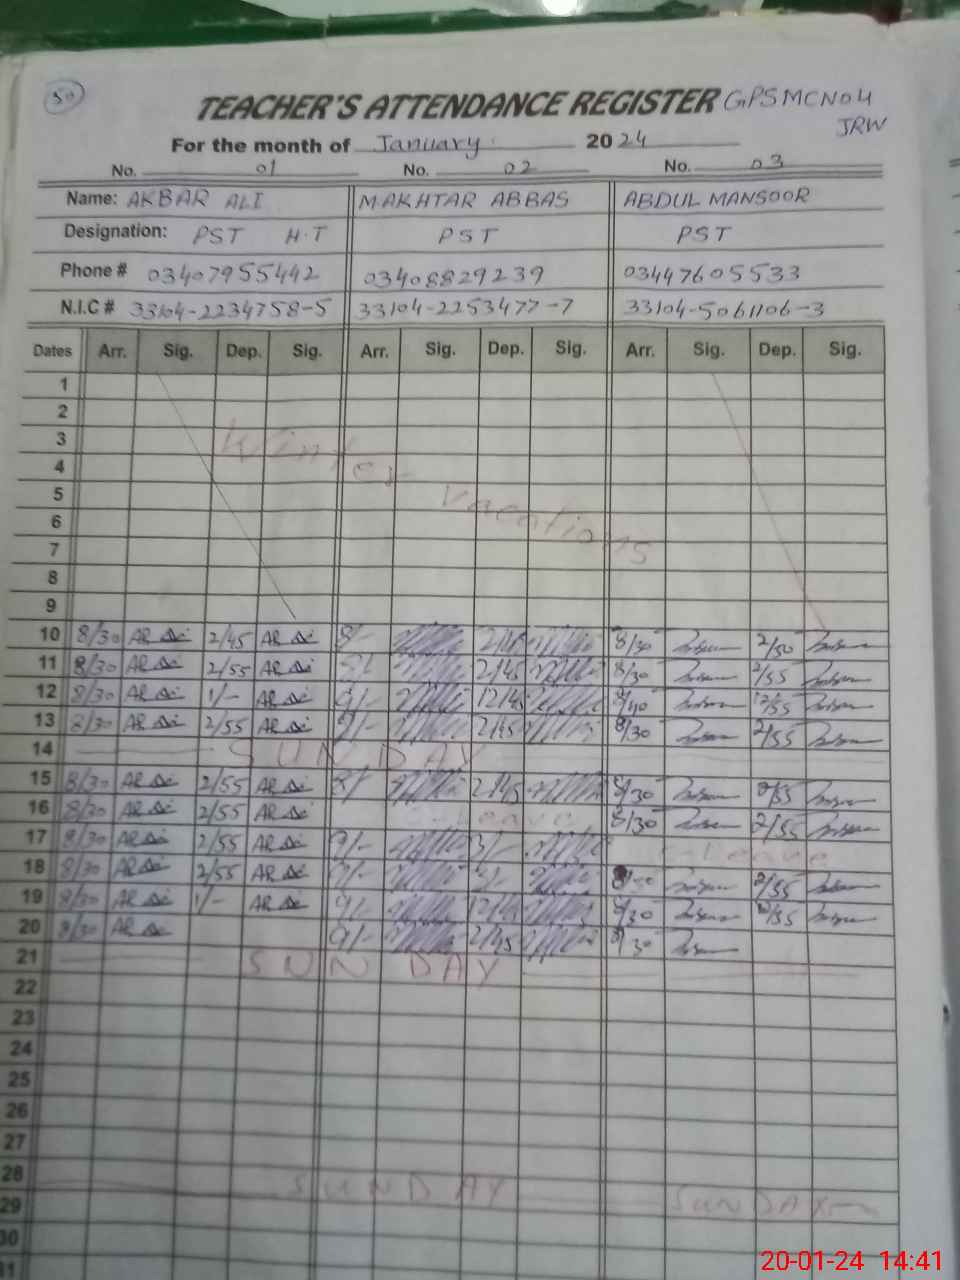 50
TEACHER'S ATTENDANCE REGISTER GPSMCN04
JRW
For the month of January. 2024
No. 01 No. 02 No. 03
Name: AKBAR ALI MAKHTAR ABBAS ABDUL MANSOOR
Designation: PST H.T PST PST
Phone # 03407955442 03408829239 03447605533
N.I.C # 33104-2234758-5 33104-2253477-7 33104-5061106-3
Dates Arr. Sig. Dep. Sig. Arr. Sig. Dep. Sig. Arr. Sig. Dep. Sig.
1
2
3
4
5
6
7
8
9
Winter vacations
10 8/30 2/45 8/- 2/45 8/30 2/50
11 8/30 2/55 2/45 8/30 2/55
12 8/30 1/- 12/45 12/55
13 8/30 2/55 9/- 2/45 8/30 2/55
14 SUNDAY
15 8/30 2/55 8/- 2/45 8/30 2/55
16 8/30 2/55 Leave 8/30 2/55
17 8/30 2/55 9/- Leave
18 8/30 2/55 9/- 2/55
19 8/30 1/- 9/- 12/45 8/30
20 8/30 9/- 2/45 8/30
21 SUNDAY
22
23
24
25
26
27
28 SUNDAY SUNDAY
29
30
31
20-01-24 14:41